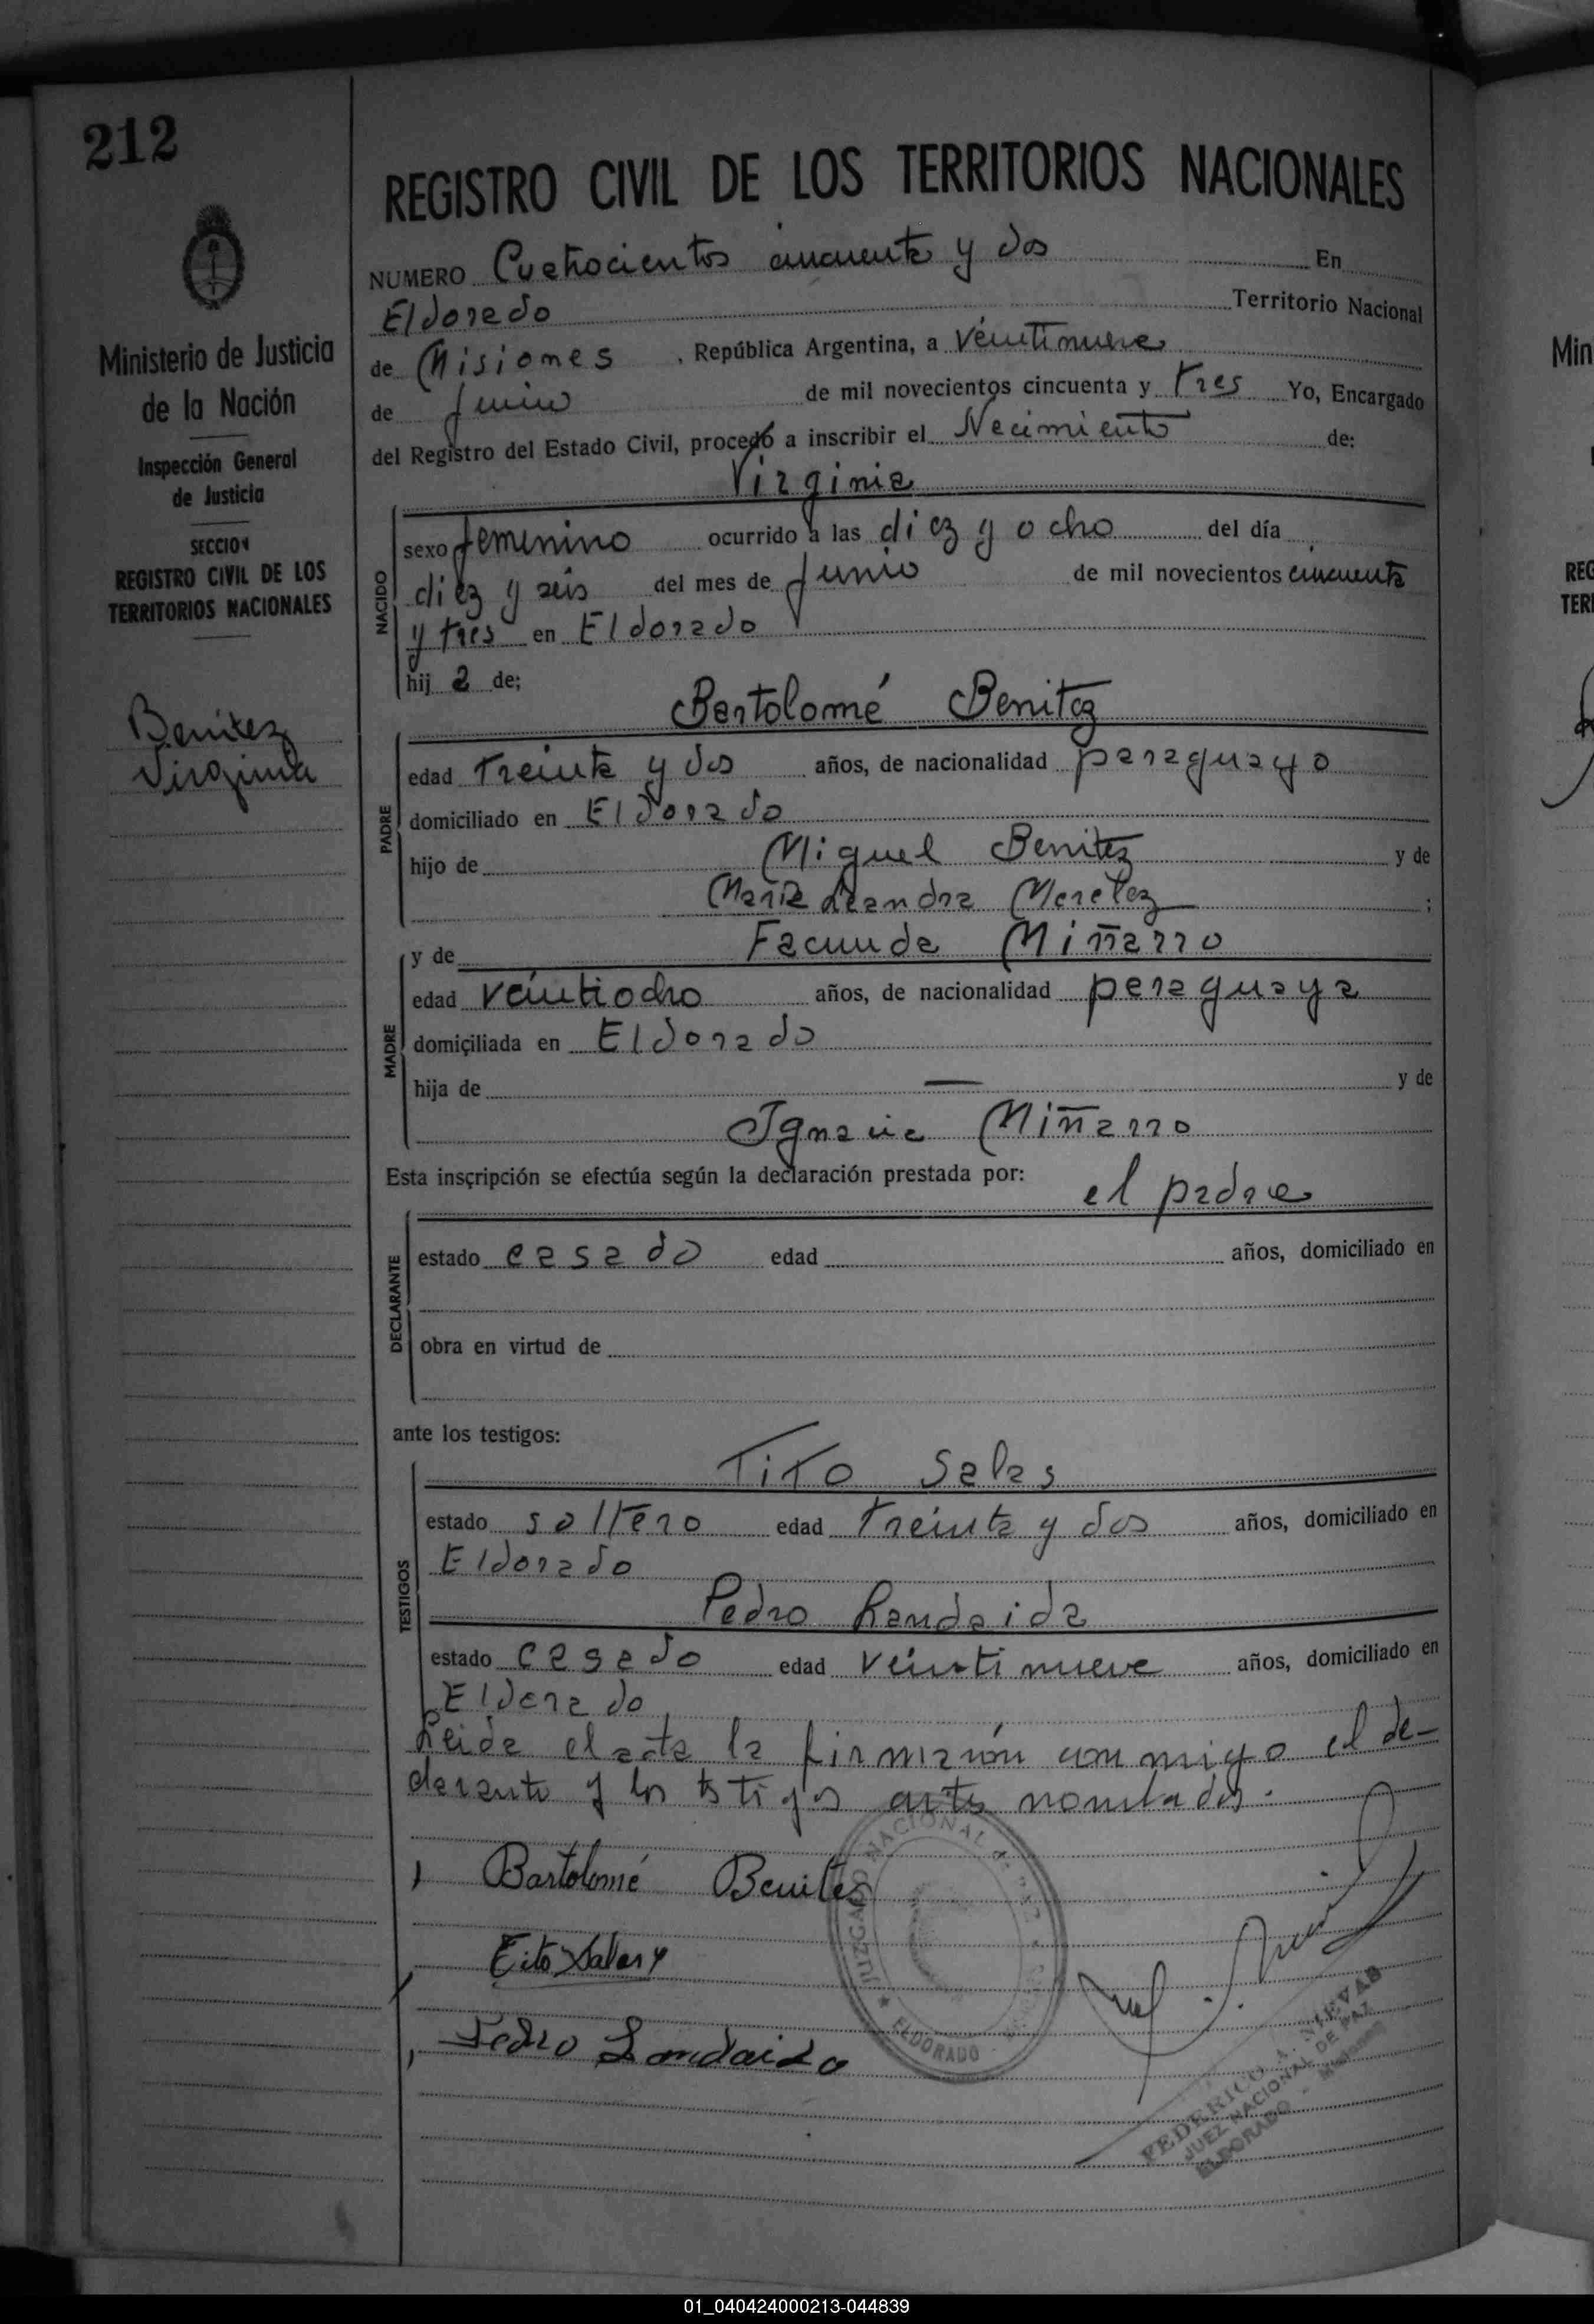 212
REGISTRO CIVIL DE LOS TERRITORIOS NACIONALES
Ministerio de Justicia
de la Nación
Inspección General
de Justicia
SECCION
REGISTRO CIVIL DE LOS
TERRITORIOS NACIONALES
Benitez
Virginia
NUMERO Cuatrocientos cincuenta y dos En
Eldorado Territorio Nacional
de Misiones, República Argentina, a veintinueve
de junio de mil novecientos cincuenta y tres Yo, Encargado
del Registro del Estado Civil, procedo a inscribir el Nacimiento de:
Virginia
NACIDO
sexo femenino ocurrido a las diez y ocho del día
diez y seis del mes de junio de mil novecientos cincuenta
y tres en Eldorado
hija de;
Bartolomé Benitez
PADRE
edad treinta y dos años, de nacionalidad paraguayo
domiciliado en Eldorado
hijo de Miguel Benitez y de
María Leandra Morelez ;
y de Facunda Miñarro
MADRE
edad veintiocho años, de nacionalidad paraguaya
domiciliada en Eldorado
hija de — y de
Ignacia Miñarro
Esta inscripción se efectúa según la declaración prestada por: el padre
DECLARANTE
estado casado edad años, domiciliado en
obra en virtud de
ante los testigos:
Tito Salas
TESTIGOS
estado soltero edad treinta y dos años, domiciliado en
Eldorado
Pedro Landaida
estado casado edad veintinueve años, domiciliado en
Eldorado
Leida el acta la firmarón conmigo el de-
clarante y los testigos antes nombrados.
Bartolomé Benitez
Tito Salas
Pedro Landaida
JUZGADO NACIONAL
ELDORADO
FEDERICO A. NIEVAS
JUEZ NACIONAL DE PAZ
ELDORADO - Misiones
Min
REG
TER
01_040424000213-044839